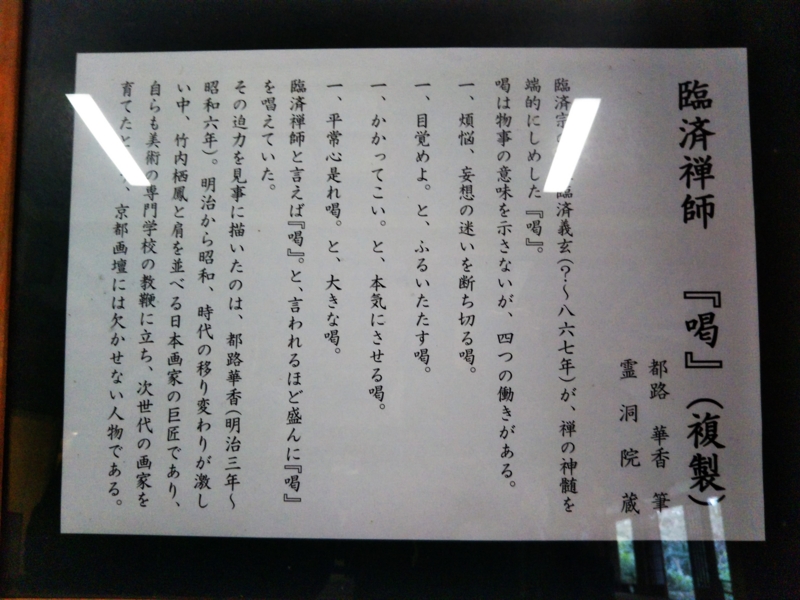 臨済禅師 『喝』(複製)
都路 華香 筆
霊洞院 蔵
臨済宗 臨済義玄(?～八六七年)が、禅の神髄を
端的にしめした『喝』。
喝は物事の意味を示さないが、四つの働きがある。
一、煩悩、妄想の迷いを断ち切る喝。
一、目覚めよ。と、ふるいたたす喝。
一、かかってこい。と、本気にさせる喝。
一、平常心是れ喝。と、大きな喝。
臨済禅師と言えば『喝』。と、言われるほど盛んに『喝』
を唱えていた。
その迫力を見事に描いたのは、都路華香(明治三年～
昭和六年)。明治から昭和、時代の移り変わりが激し
い中、竹内栖鳳と肩を並べる日本画家の巨匠であり、
自らも美術の専門学校の教鞭に立ち、次世代の画家を
育てた 京都画壇には欠かせない人物である。